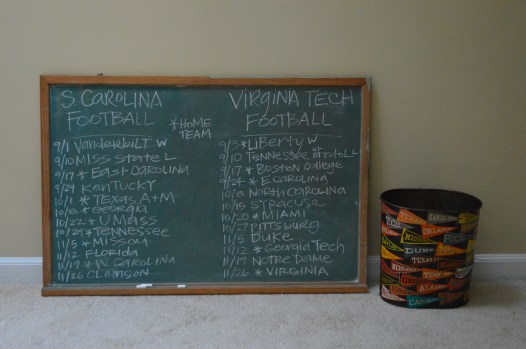 S CAROLINA
FOOTBALL
9/1 Vanderbilt W
9/10 MISS STATE L
9/17 * EAST CAROLINA
9/24 KENTUCKY
10/1 * TEXAS A+M
* GEORGIA
10/22 * U MASS
10/29 * TENNESSEE
11/5 * MISSOURI
11/12 FLORIDA
11/19 * W. CAROLINA
11/26 CLEMSON
* HOME
TEAM
VIRGINIA TECH
FOOTBALL
9/3 * LIBERTY W
9/10 TENNESSEE at BRISTOL L
9/17 * BOSTON COLLEGE
9/24 * E CAROLINA
10/8 NORTH CAROLINA
10/15 SYRACUSE
10/20 * MIAMI
10/27 PITTSBURG
11/5 DUKE
11/12 * GEORGIA TECH
11/19 NOTRE DAME
11/26 * VIRGINIA
DUKE
TEXAS